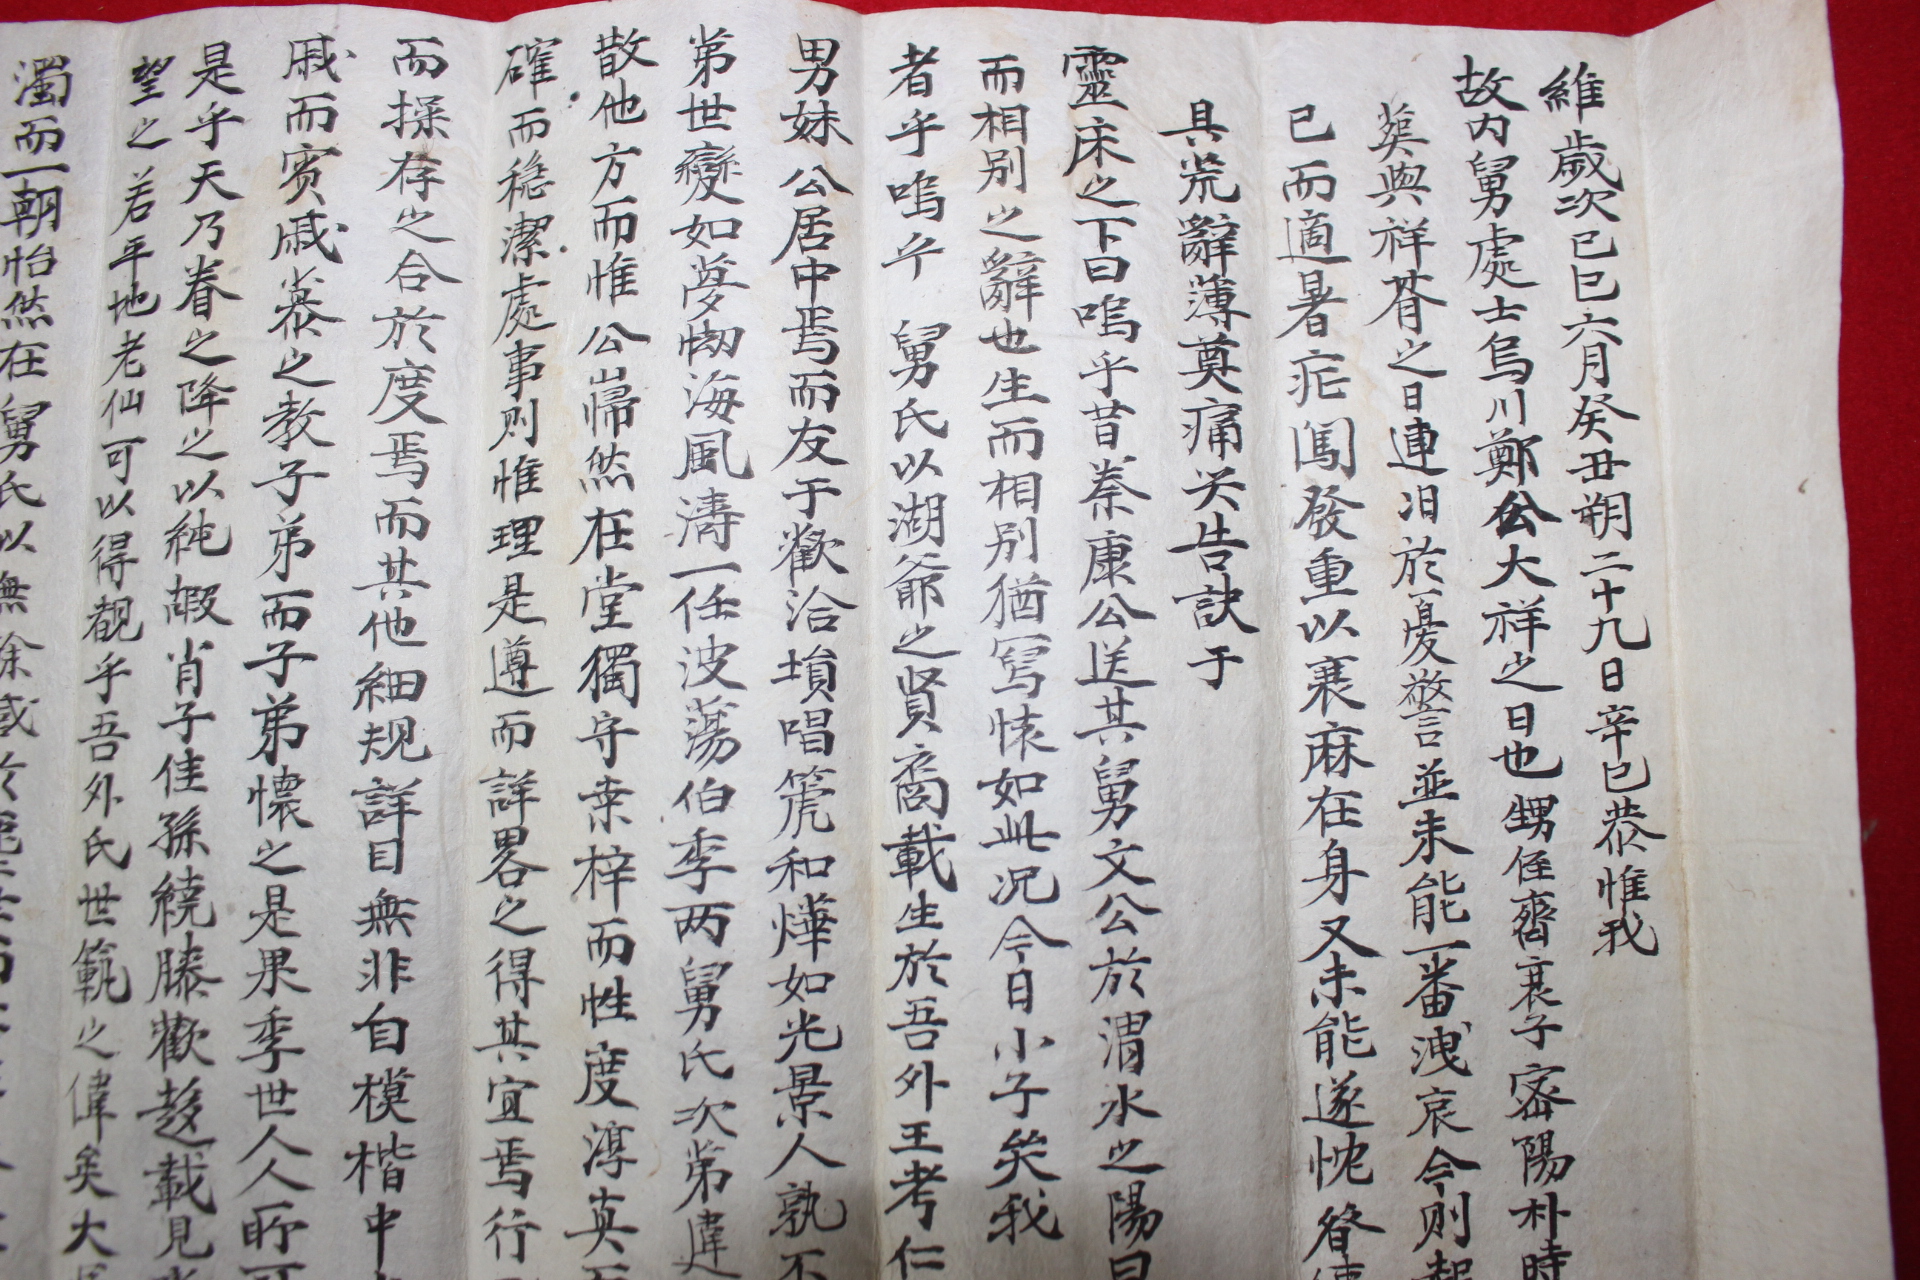 維歲次己巳六月癸丑朔二十九日辛巳恭惟我
故內舅處士烏川鄭公大祥之日也甥侄齋衰子密陽朴時
葬與祥朞之日連汩於憂警並未能一番洩哀今則
已而適暑疟闖發重以衰麻在身又未能遂忱
具荒辭薄奠痛哭告訣于
靈床之下曰嗚乎昔秦康公送其舅文公於渭水之陽曰
而相別之辭也生而相別猶寫懷如此况今日小子矣我
者乎嗚乎 舅氏以湖爺之賢裔載生於吾外王考仁
男妹公居中焉而友于歡洽塤唱箎和燁如光景人孰不
第世變如夢刼海風濤一任波蕩伯季两舅氏次第違
散他方而惟公巋然在堂獨守桒梓而性度淳真
確而穏潔處事則惟理是遵而詳畧之得其宜焉行
而操存之合於度焉而其他細規詳目無非自模楷中
戚而賓戚慕之教子弟而子弟懷之是果季世人人所可
是乎天乃眷之降之以純嘏肖子佳孫繞膝歡趍載見
望之若平地老仙可以得覩乎吾外氏世範之偉矣大
濁而一朝怡然在舅氏以無餘感於